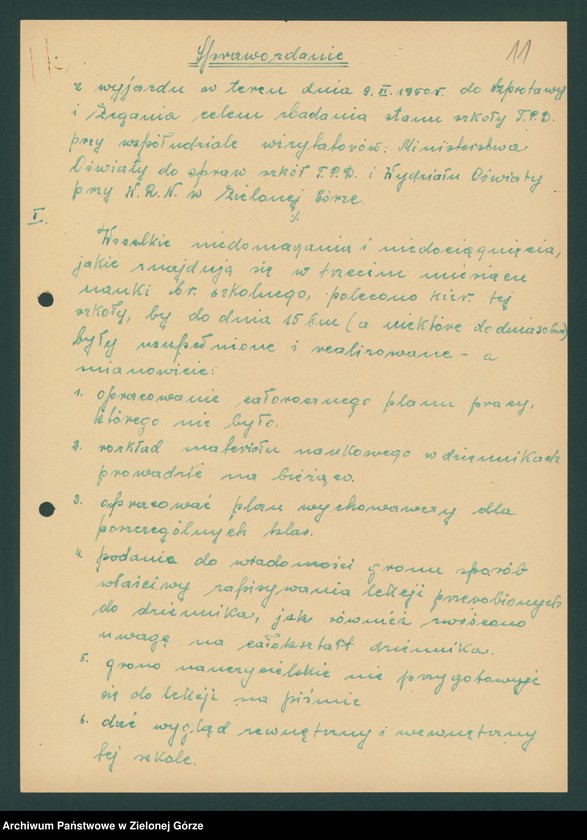 11
Sprawozdanie
z wyjazdu w teren dnia 9.XI.1950r. do Szprotawy
i Żagania celem zbadania stanu szkoły T.P.D.
przy współudziale wizytatorów: Ministerstwa
Oświaty do spraw szkół T.P.D. i Wydziału Oświaty
przy W.R.N. w Zielonej Górze
I.
Wszelkie niedomagania i niedociągnięcia,
jakie znajdują się w trzecim miesiącu
nauki br. szkolnego, polecono kier. tej
szkoły, by do dnia 15 bm (a niektóre do dnia 30 bm)
były uzupełnione i realizowane - a
mianowicie:
1. opracowanie całorocznego planu pracy,
którego nie było.
2. rozkład materiału naukowego w dziennikach
prowadzić na bieżąco.
3. opracować plan wychowawczy dla
poszczególnych klas.
4. podanie do wiadomości gronu sposób
właściwy zapisywania lekcji przerobionych
do dziennika, jak również zwrócono
uwagę na całokształt dziennika.
5. grono nauczycielskie nie przygotowuje
się do lekcji na piśmie
6. dać wygląd zewnętrzny i wewnętrzny
tej szkole.
Archiwum Państwowe w Zielonej Górze